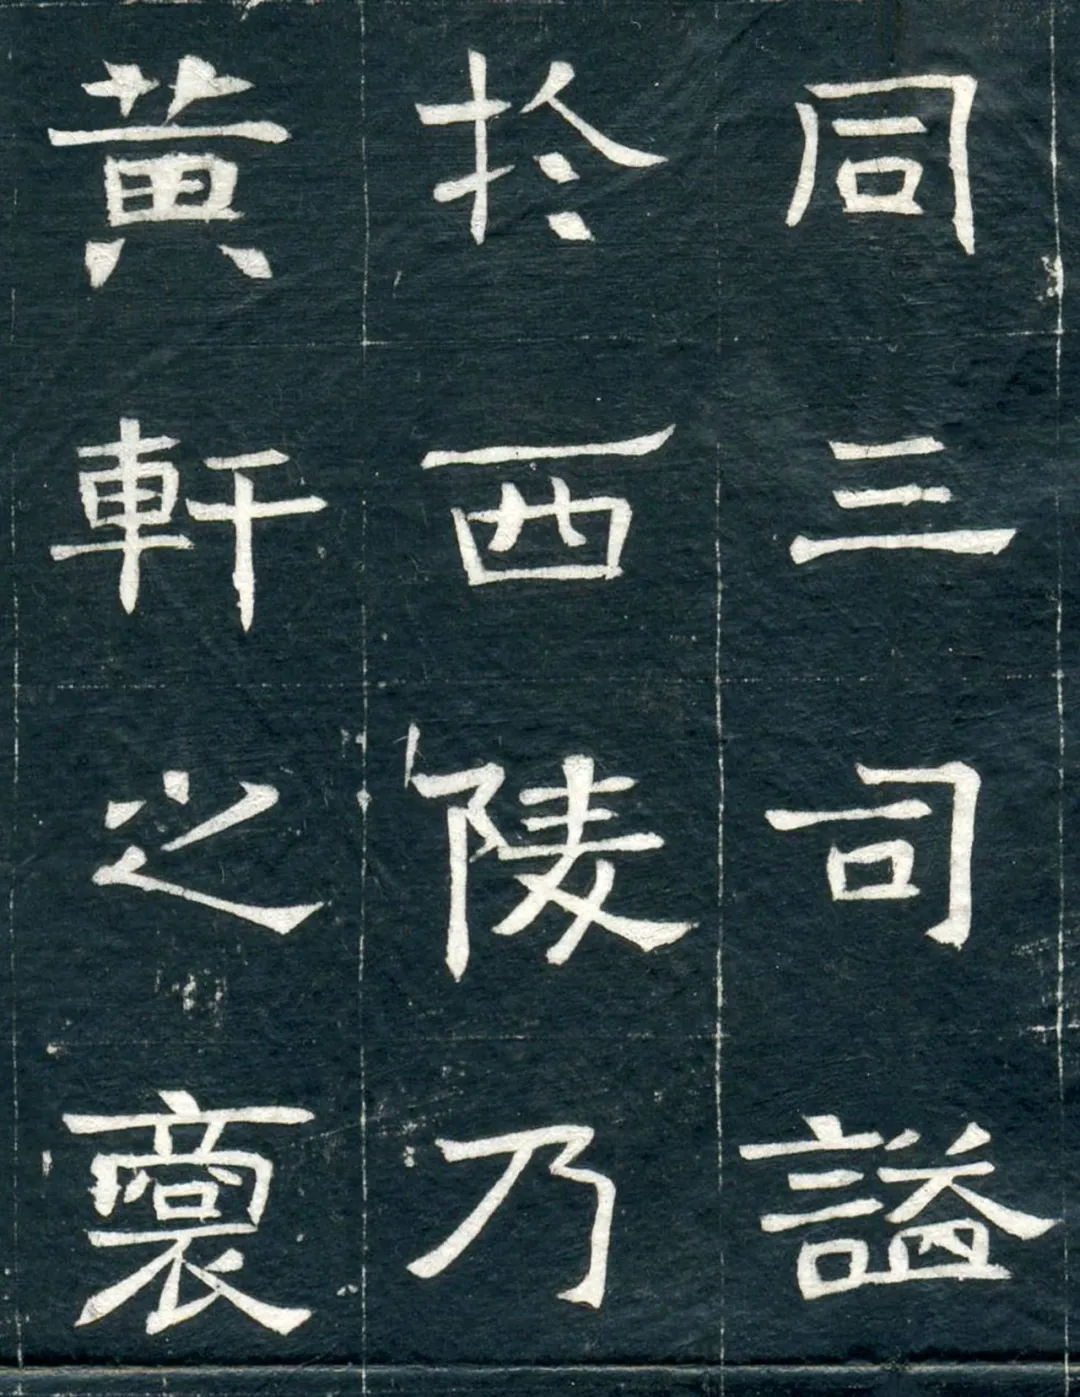 同三司謚
於西陵乃
黄軒之裔